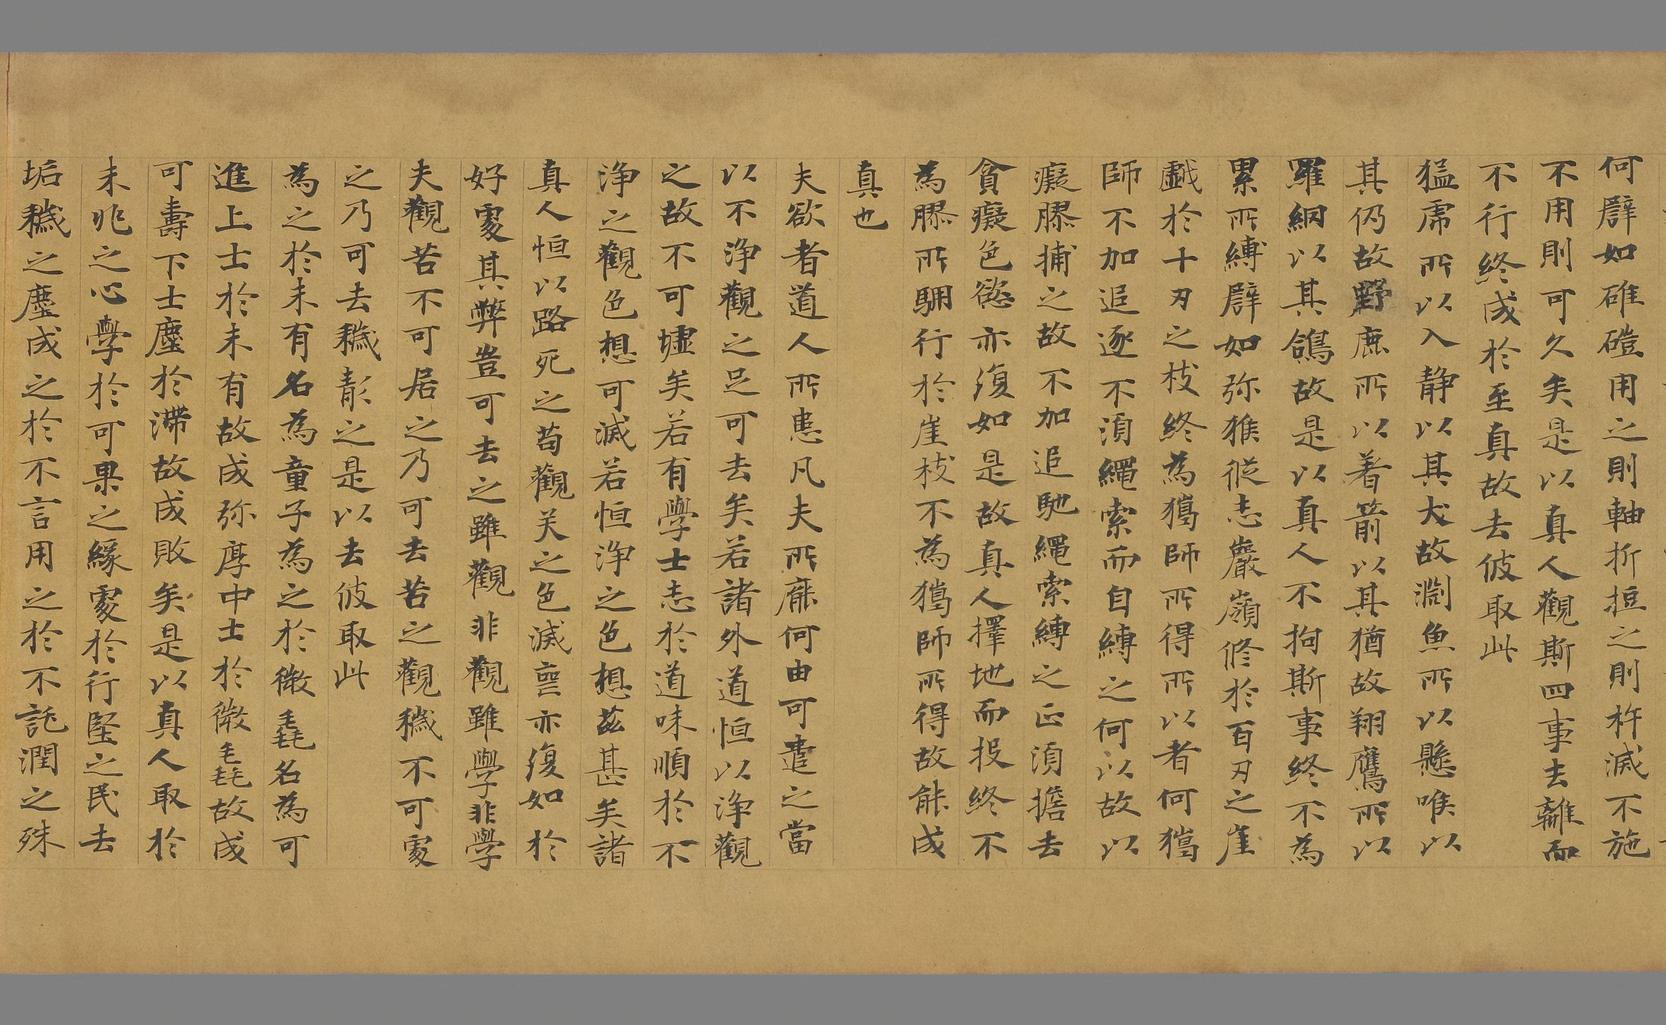 何譬如碓磑用之則軸折拒之則杵滅不施
不用則可久矣是以真人觀斯四事去離而
不行終成於至真故去彼取此
猛虎所以入静以其犬故淵魚所以懸唯以
其仍故野鹿所以着箭以其猶故翔鷹所以
羅網以其鴿故是以真人不拘斯事終不為
累所縛譬如弥猴従志巖嶺修於百刃之崖
戱於十刃之枝終為獦師所得所以者何獦
師不加追逐不湏繩索而自縛之何以故以
癡膠捕之故不加追馳繩索縛之正湏擔去
貪癡色慾亦復如是故真人擇地而投終不
為膠所駰行於崖枝不為獦師所得故能成
真也
夫欲者道人所患凡夫所靡何由可遣之當
以不浄觀之足可去矣若諸外道恒以浄觀
之故不可壚矣若有學士志於道味順於不
浄之觀色想可滅若恒浄之色想茲甚矣諸
真人恒以路死之苟觀关之色滅亦復如於
好處其弊豈可去之雖觀非觀雖學非學
夫觀苦不可居之乃可去苦之觀穢不可處
之乃可去穢彰之是以去彼取此
為之於未有名為童子為之於微毳名為可
進上士於未有故成弥厚中士於微毳故成
可壽下士塵於滯故成敗矣是以真人取於
未兆之心學於可果之緣處於行堅之民去
垢穢之塵成之於不言用之於不託潤之殊